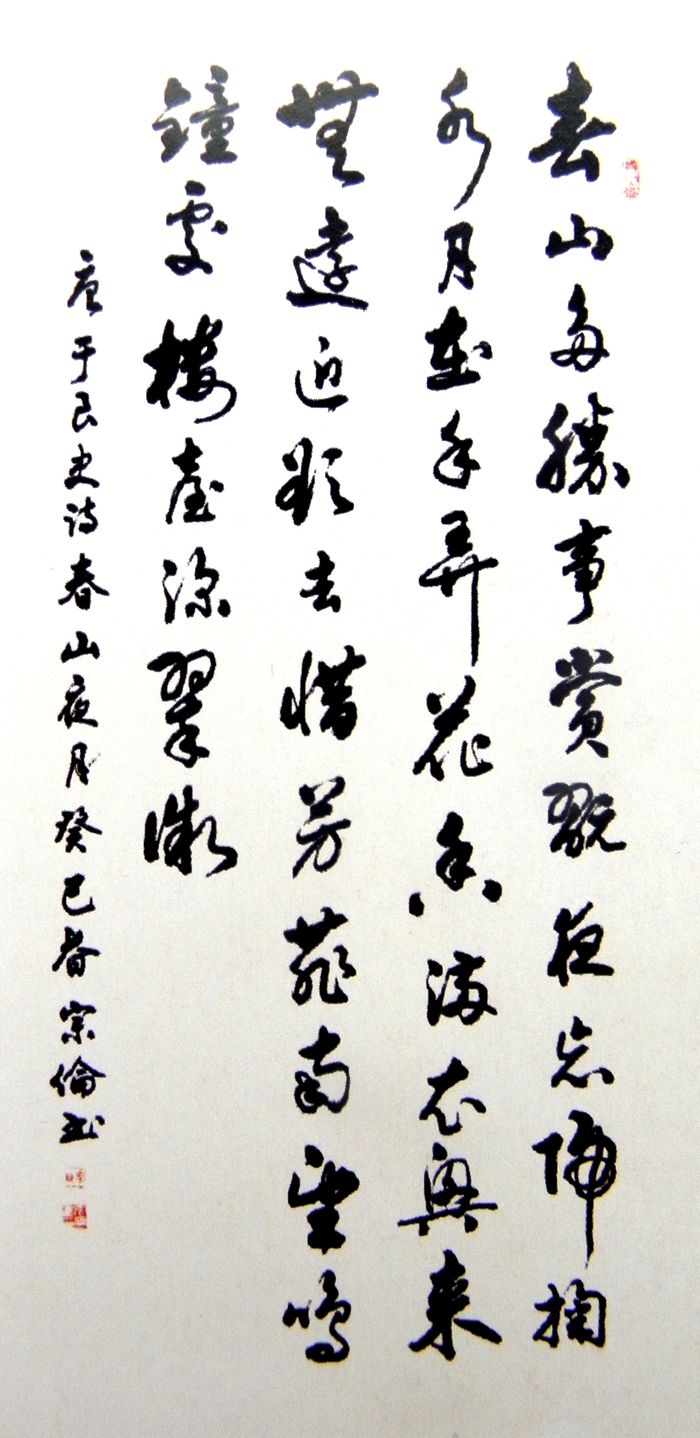 春山多勝事賞翫夜忘歸掬
水月在手弄花香滿衣興來
無遠近欲去惜芳菲南望鳴
鐘處樓臺深翠微
唐于良史詩春山夜月癸巳春宗倫书